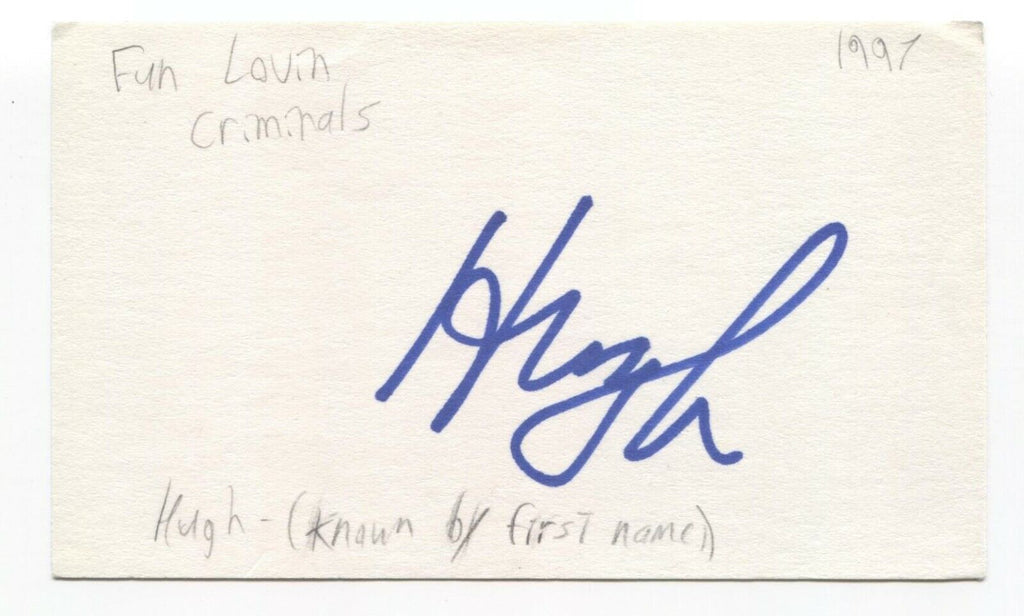 Fun Lovin 1997
Criminals
Hugh
Hugh - (known by first name)